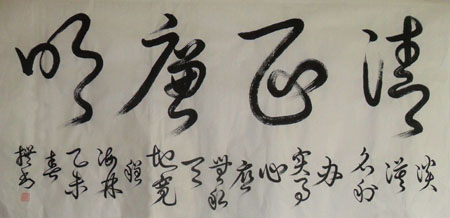 清正廉明
淡漠名利办实事心底無私天地宽
海林乙未春